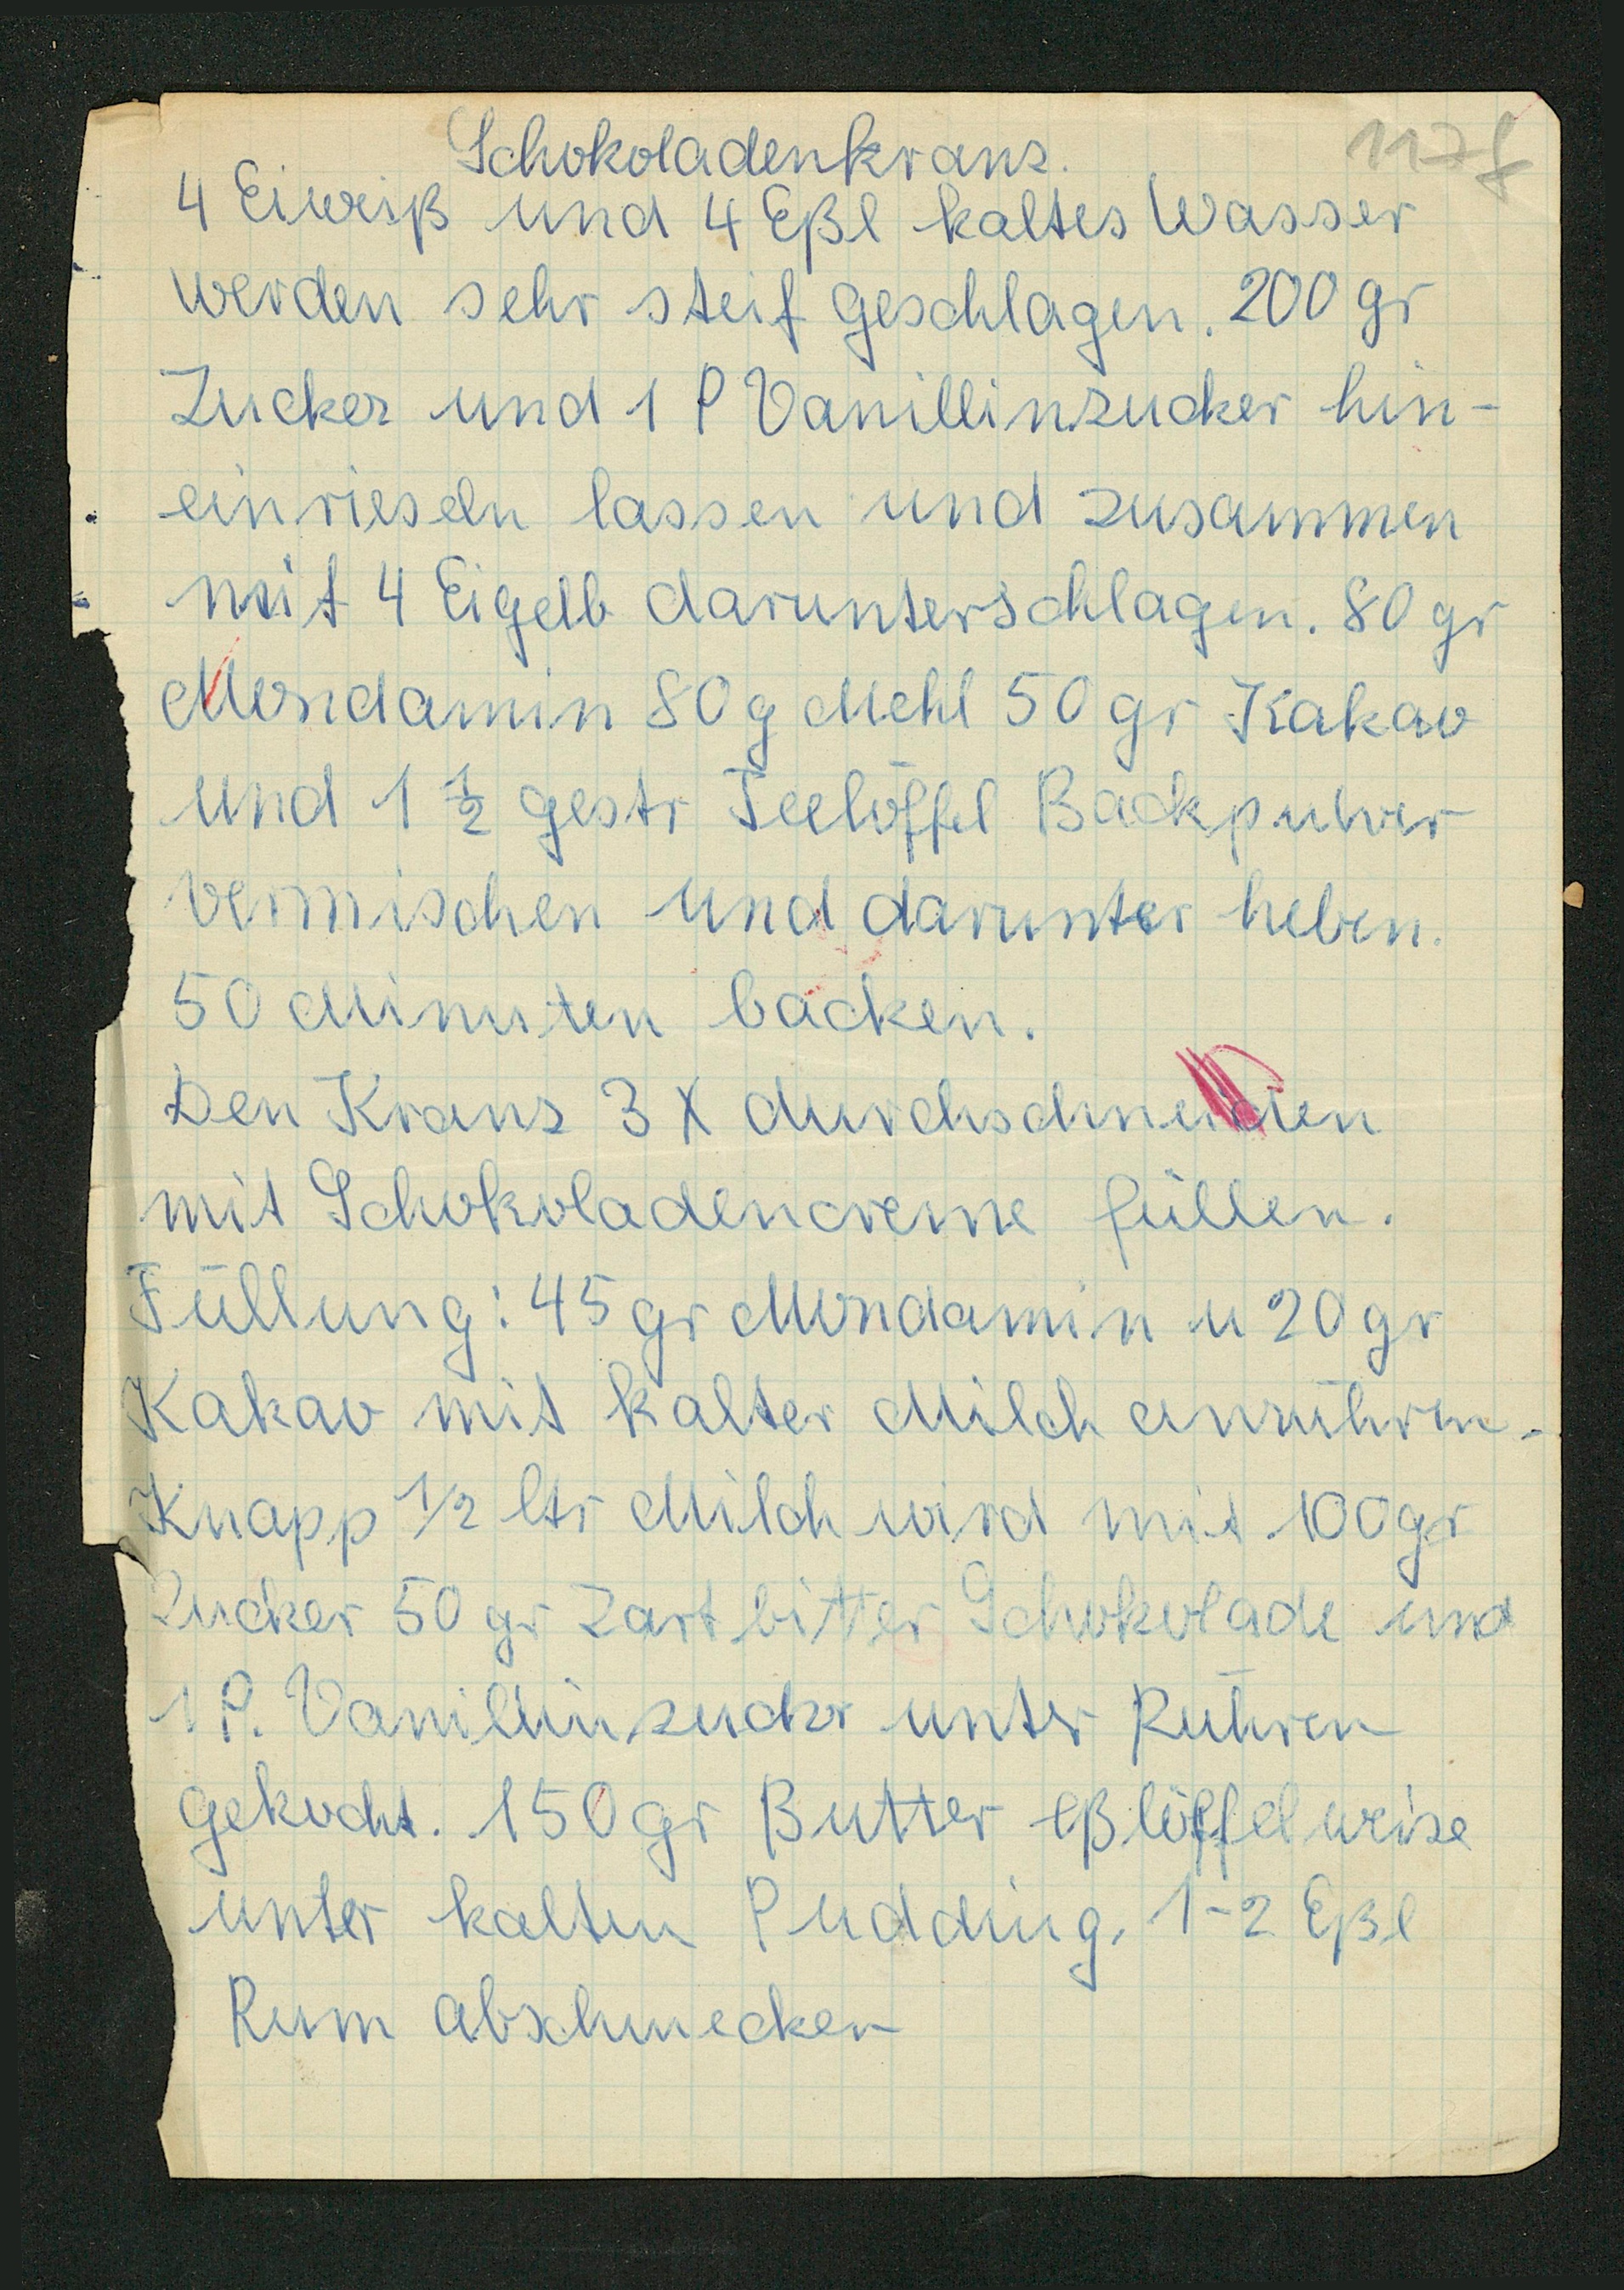 Schokoladenkranz.
4 Eiweiß und 4 Eßl kaltes Wasser
werden sehr steif geschlagen. 200 gr
Zucker und 1 P Vanillinzucker hin-
einrieseln lassen und zusammen
mit 4 Eigelb darunterschlagen. 80 gr
Mondamin 80 g Mehl 50 gr Kakao
und 1 1/2 gestr Teelöffel Backpulver
vermischen und darunter heben.
50 Minuten backen.
Den Kranz 3 X durchschneiden
mit Schokoladencreme füllen.
Füllung: 45 gr Mondamin u 20 gr
Kakao mit kalter Milch anrühren.
Knapp 1/2 ltr Milch wird mit 100 gr
Zucker 50 gr Zartbitter Schokolade und
1 P. Vanillinzucker unter Rühren
gekocht. 150 gr Butter eßlöffelweise
unter kalten Pudding. 1-2 Eßl
Rum abschmecken